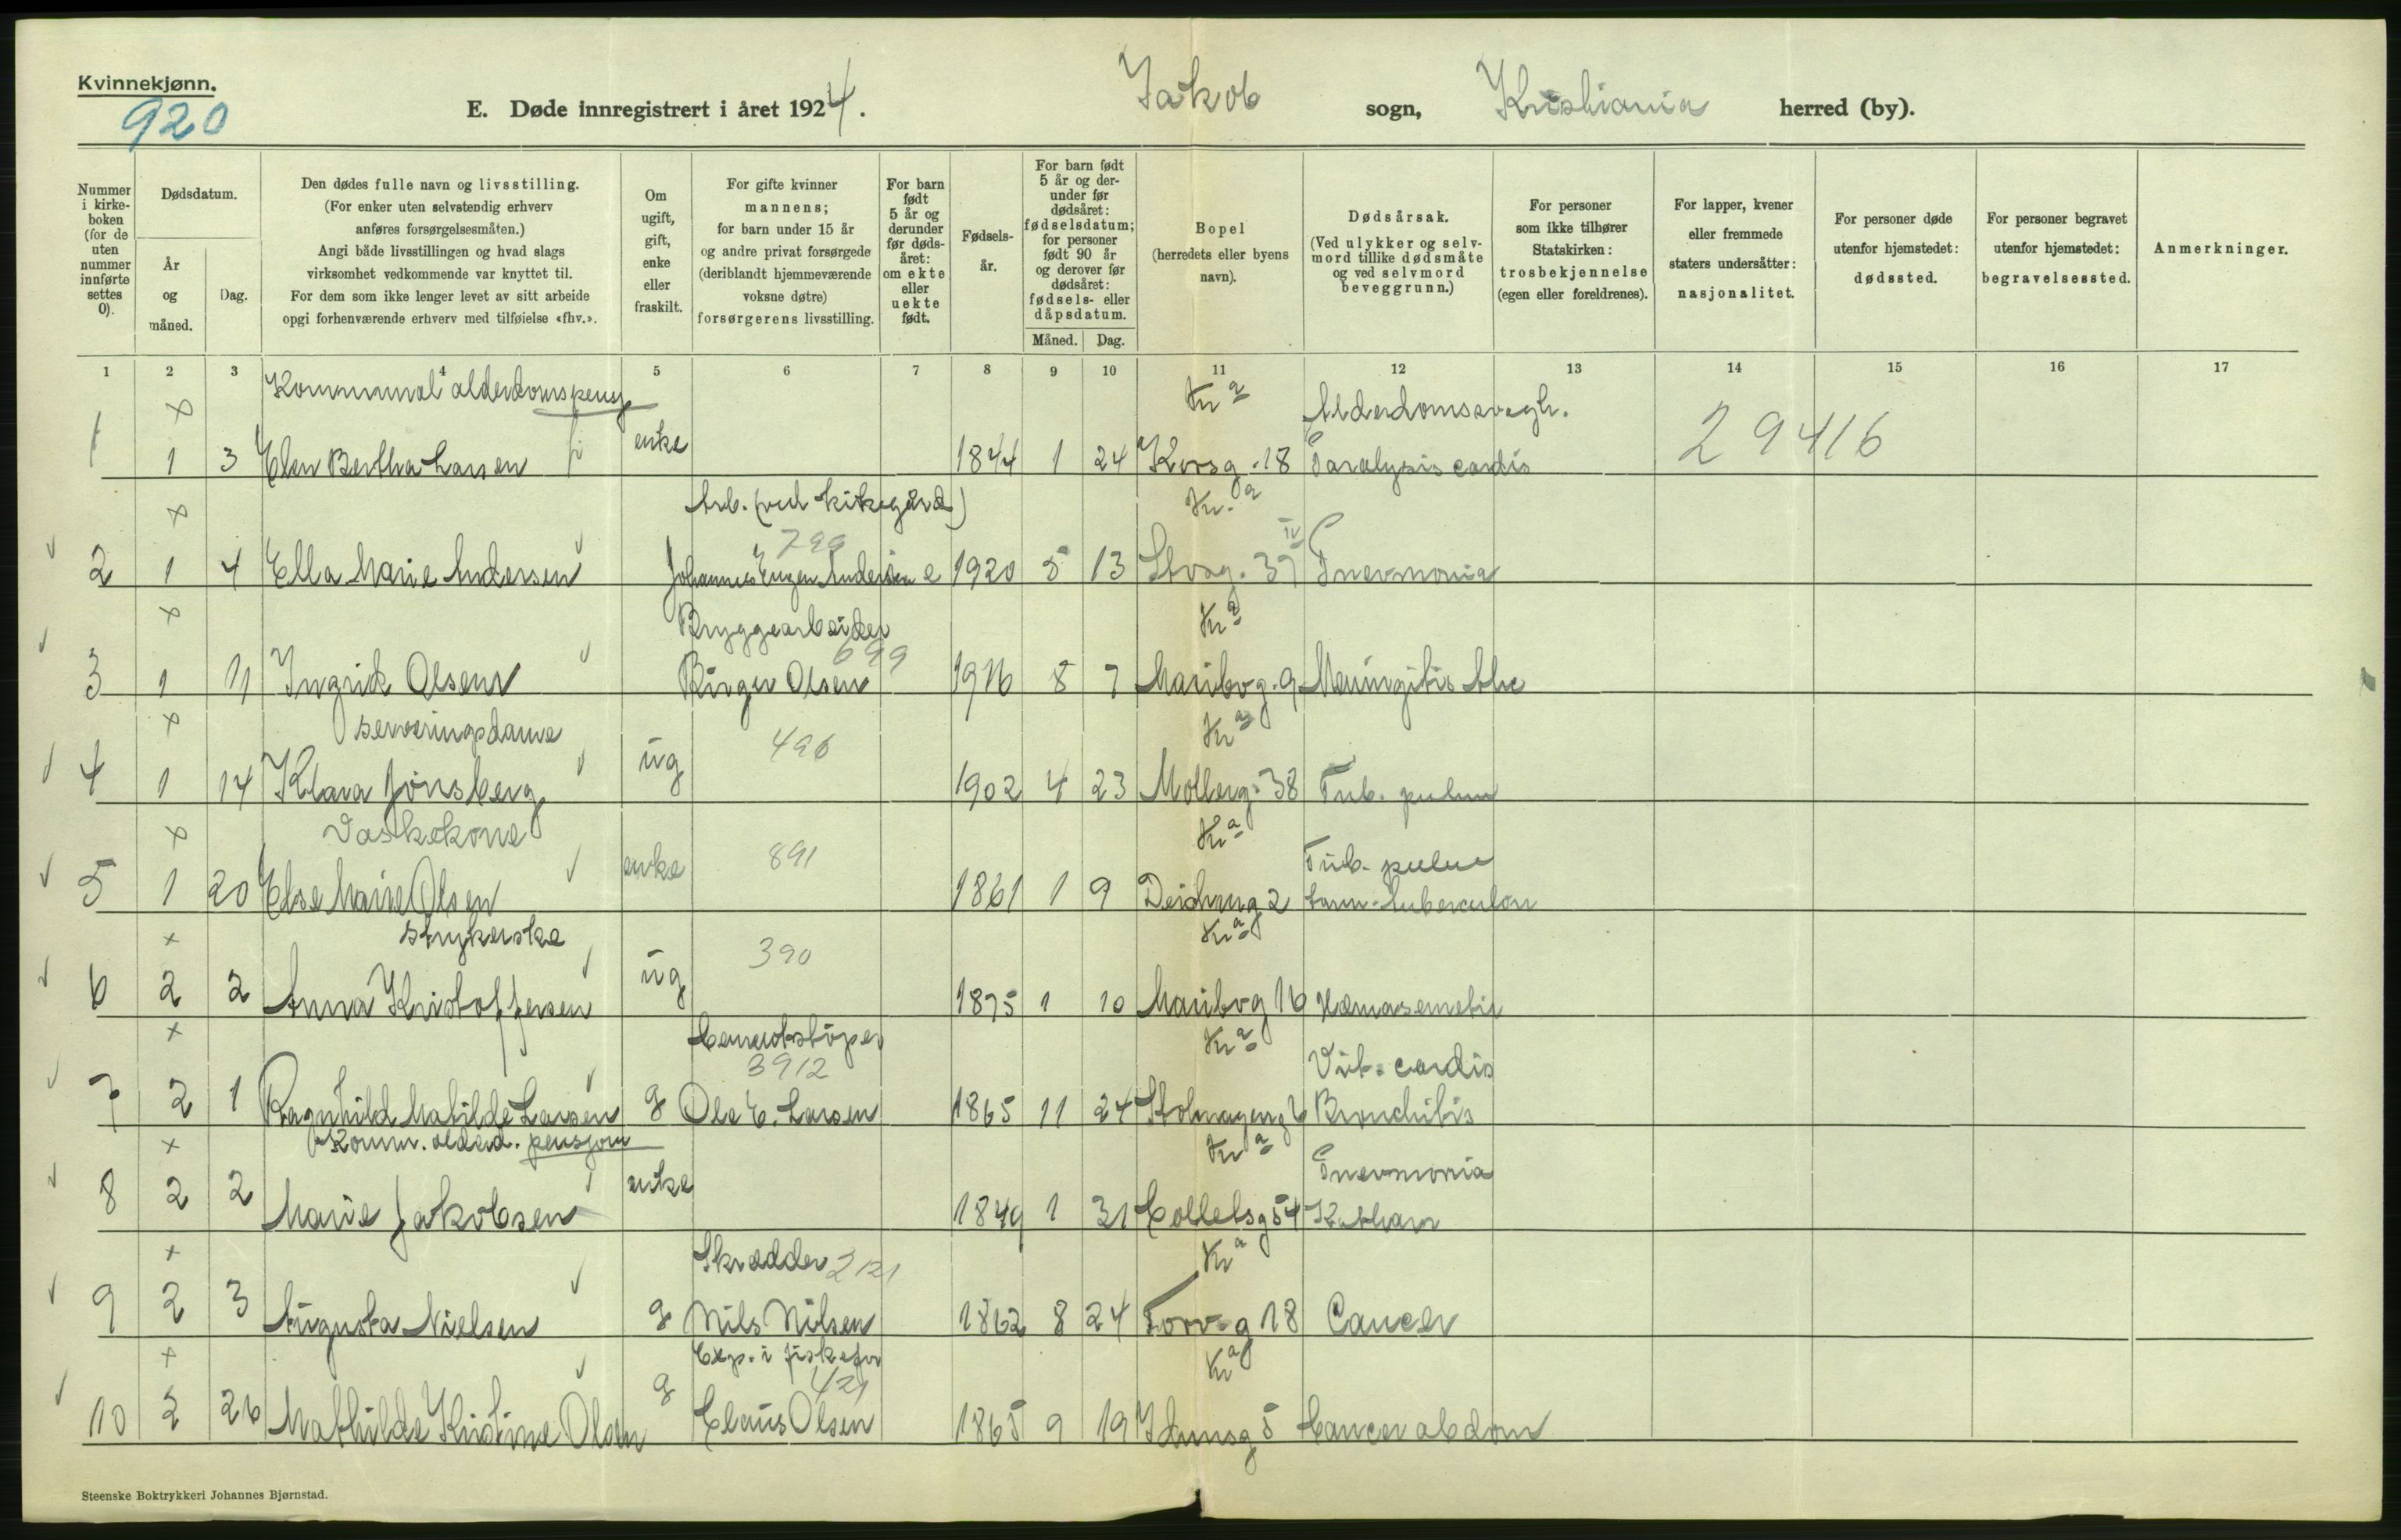 Kvinnekjønn.
920
E. Døde innregistrert i året 1924.
Jakob sogn, Kristiania herred (by).
Nummer i kirke-boken (for de uten nummer innførte settes 0).
Dødsdatum.
År og måned.
Dag.
Den dødes fulle navn og livsstilling.
(For enker uten selvstendig erhverv anføres forsørgelsesmåten.)
Angi både livsstillingen og hvad slags virksomhet vedkommende var knyttet til.
For dem som ikke lenger levet av sitt arbeide opgi forhenværende erhverv med tilføielse «fhv.».
Om ugift, gift, enke eller fraskilt.
For gifte kvinner mannens; for barn under 15 år og andre privat forsørgede (deriblandt hjemmeværende voksne døtre) forsørgerens livsstilling.
For barn født 5 år og derunder før døds-året: om ekte eller uekte født.
Fødsels-år.
For barn født 5 år og der-under før dødsåret: fødselsdatum; for personer født 90 år og derover før dødsåret: fødsels- eller dåpsdatum.
Måned. Dag.
Bopel (herredets eller byens navn).
Dødsårsak.
(Ved ulykker og selv-mord tillike dødsmåte og ved selvmord beveggrunn.)
For personer som ikke tilhører Statskirken: trosbekjennelse (egen eller foreldrenes).
For lapper, kvener eller fremmede staters undersåtter: nasjonalitet.
For personer døde utenfor hjemstedet: dødssted.
For personer begravet utenfor hjemstedet: begravelsessted.
Anmerkninger.
1 2 3 4 5 6 7 8 9 10 11 12 13 14 15 16 17
x Kommunal alderdomspensj Kra Alderdomssvagh.
1 1 3 Elen Bertha Larsen enke 1844 1 24 Korsg. 18 Paralysis cordis 29416
x Arb. (ved kirkegård) Kr.a
799
2 1 4 Ella Marie Andersen Johannes Eugen Andersen e 1920 5 13 Storg. 37 IV Pnevmonia
x Bryggearbeider Kra
699
3 1 11 Ingrid Olsen Birger Olsen 1916 8 7 Maribog. 9 Meningitis tbc
x serveringsdame Kra
4 1 14 Klara Jønsberg ug 496 1902 4 23 Møllerg. 38 Tub. pulm
x Vaskekone Kra
891 Tub. pulm
5 1 20 Else Marie Olsen enke 1861 1 9 Deichmg 2 tarm-tuberculon
x strykerske Kra
390
6 2 2 Anna Kristoffersen ug 1875 1 10 Maribog 16 Hæmasemetis
x Cementstøper Kra
3912 Vit. cordis
7 2 1 Ragnhild Matilde Larsen g Ole E. Larsen 1865 11 24 Bronchitis
x Komm. alderd. pensjon Kra
Pnevmonia
8 2 2 Marie Jakobsen enke 1849 1 31 Colletsg 54 Katharr
x Skredder 2121 Kra
9 2 3 Augusta Nielsen g Nils Nilsen 1862 8 24 Torvg 18 Cancer
x Exp. i fiskefor Kra
421
10 2 26 Mathilde Kristine Olsen g Claus Olsen 1865 9 19 Idunsg 5 Cancer abdom
Steenske Boktrykkeri Johannes Bjørnstad.